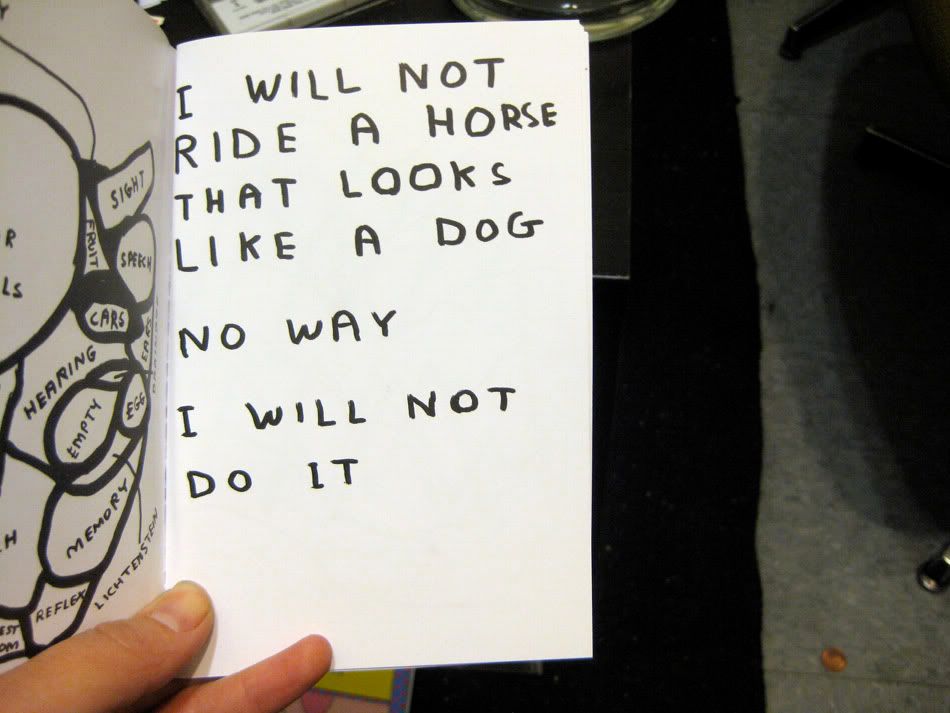 SIGHT
FRUIT
SPEECH
LS
CARS
EARS
HEARING
EGG
EMPTY
MEMORY
LICHTENSTEIN
REFLEX
I WILL NOT
RIDE A HORSE
THAT LOOKS
LIKE A DOG
NO WAY
I WILL NOT
DO IT